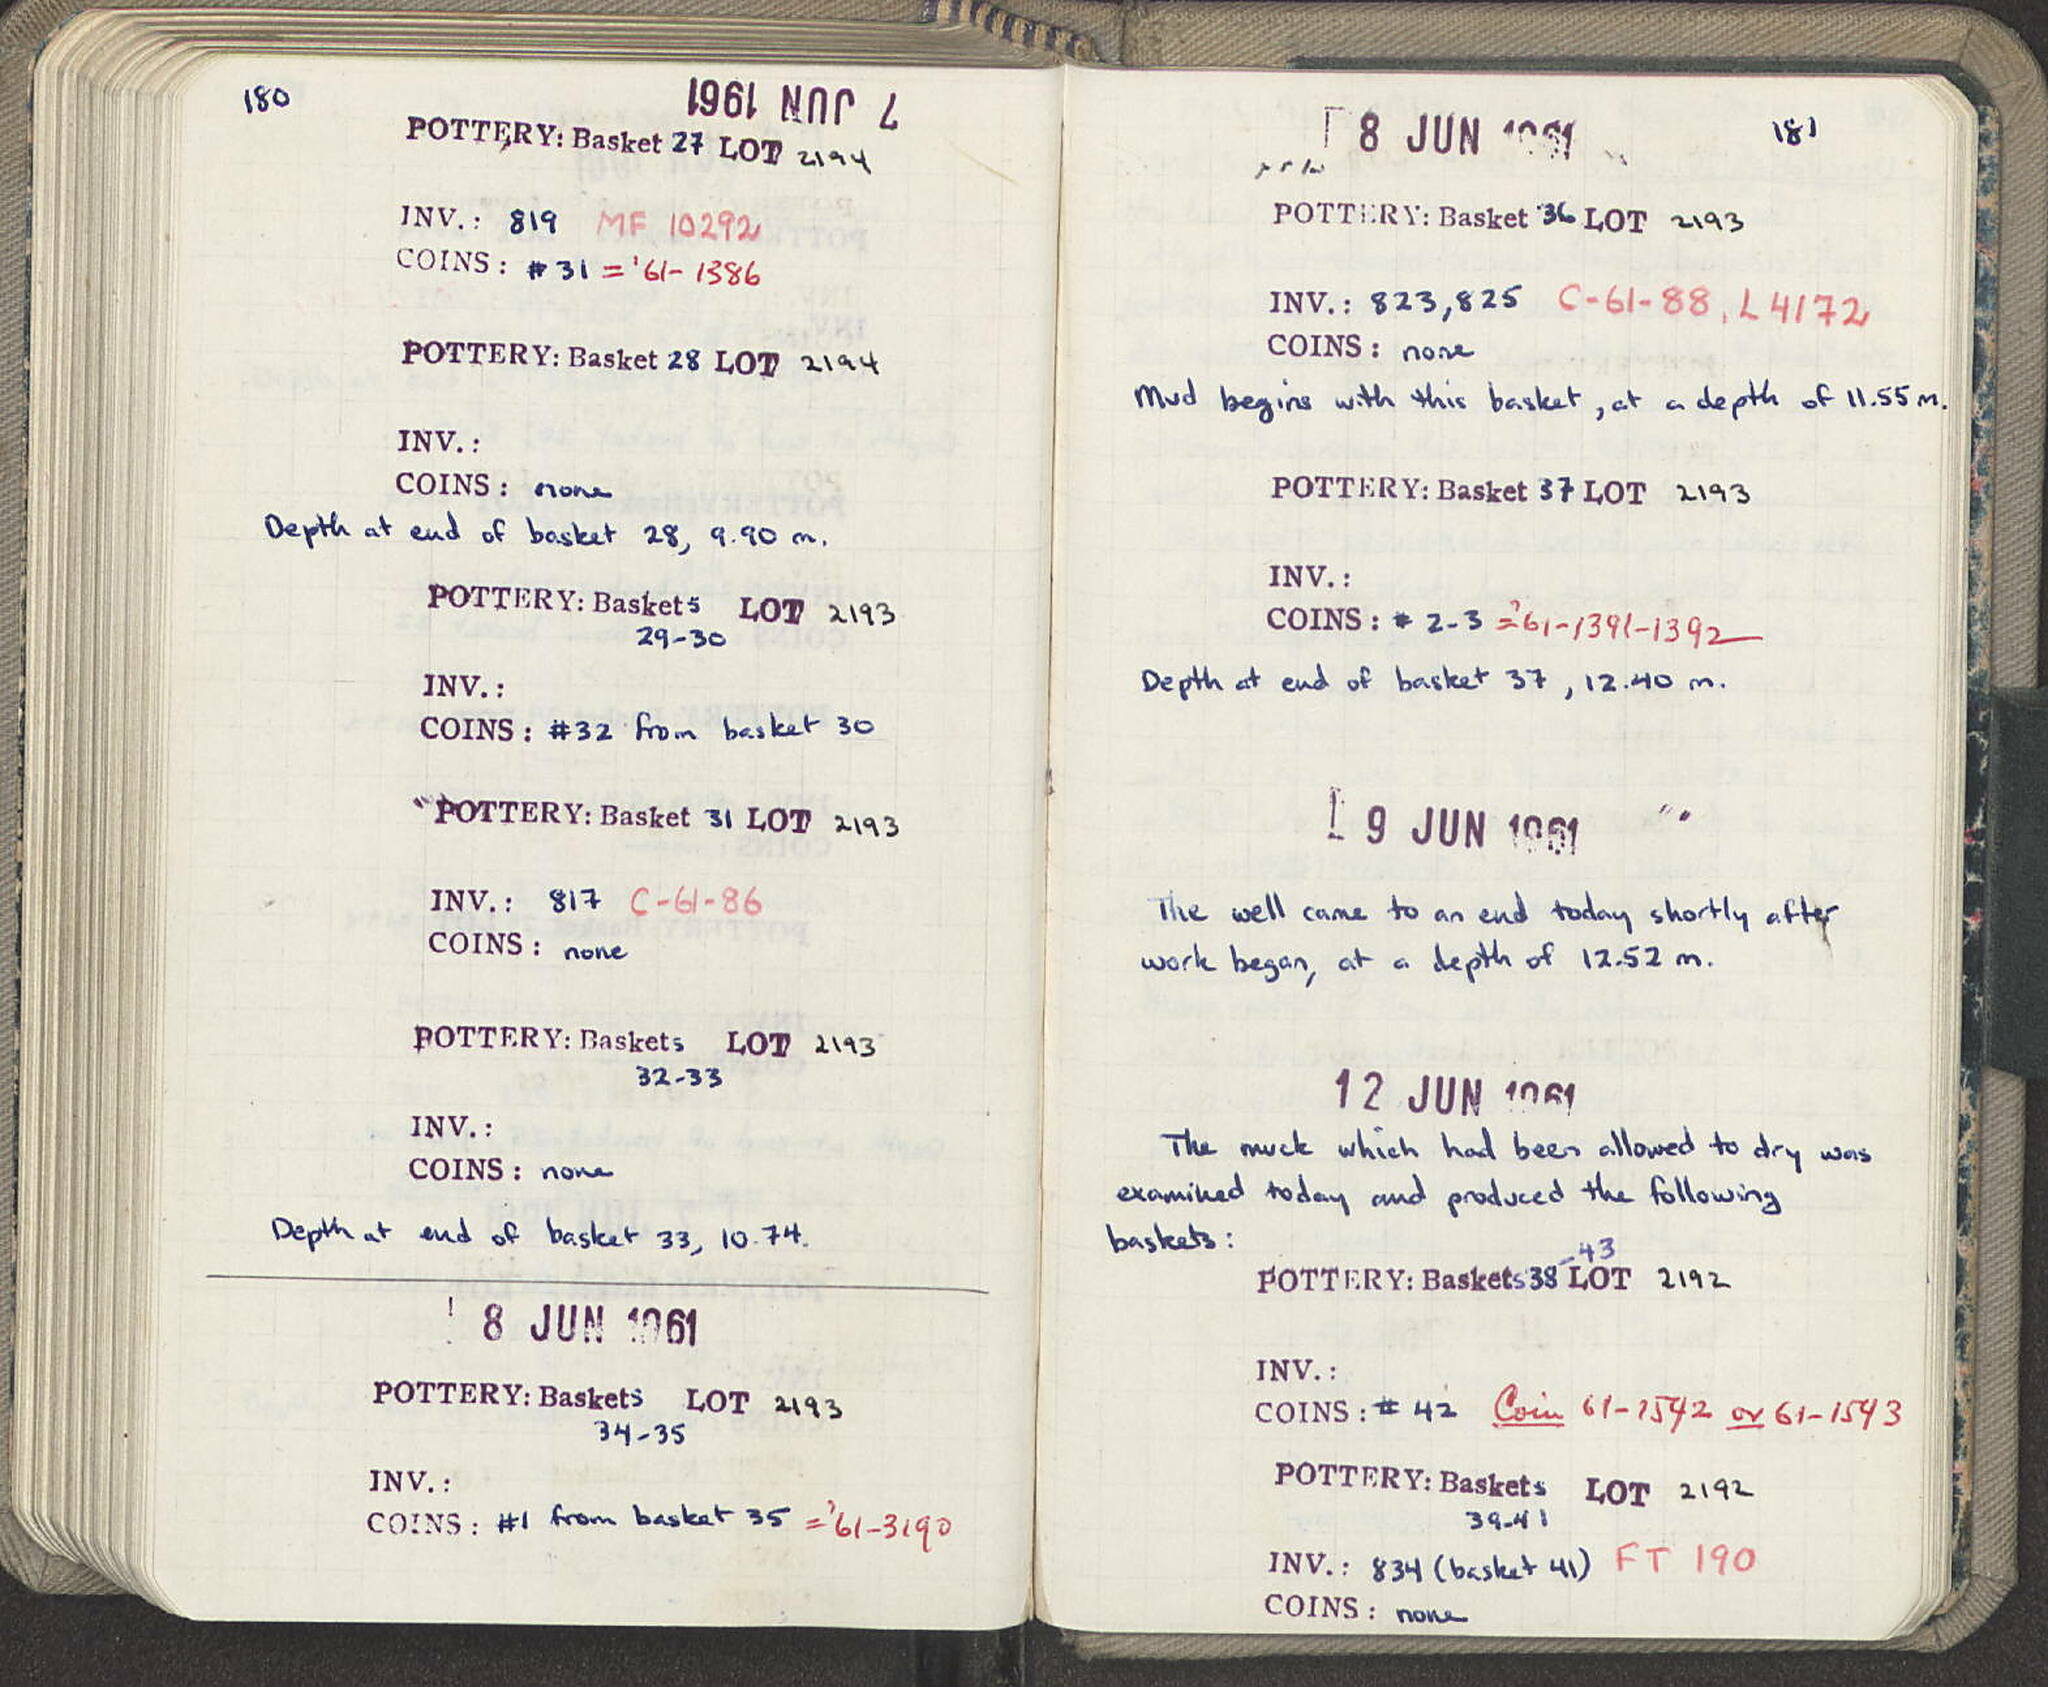 180
7 JUN 1961
POTTERY: Basket 27 LOT 2194
INV.: 819 MF 10292
COINS: #31 = '61-1386
POTTERY: Basket 28 LOT 2194
INV.:
COINS: none
Depth at end of basket 28, 9.90 m.
POTTERY: Baskets LOT 2193
29-30
INV.:
COINS: #32 from basket 30
POTTERY: Basket 31 LOT 2193
INV.: 817 C-61-86
COINS: none
POTTERY: Baskets LOT 2193
32-33
INV.:
COINS: none
Depth at end of basket 33, 10.74.
8 JUN 1961
POTTERY: Baskets LOT 2193
34-35
INV.:
COINS: #1 from basket 35 = '61-3190
8 JUN 1961
181
POTTERY: Basket 36 LOT 2193
INV.: 823, 825 C-61-88, L 4172
COINS: none
Mud begins with this basket, at a depth of 11.55 m.
POTTERY: Basket 37 LOT 2193
INV.:
COINS: # 2-3 = '61-1391-1392
Depth at end of basket 37, 12.40 m.
9 JUN 1961
The well came to an end today shortly after
work began, at a depth of 12.52 m.
12 JUN 1961
The muck which had been allowed to dry was
examined today and produced the following
baskets:
POTTERY: Baskets 38-43 LOT 2192
INV.:
COINS: # 42 Coin 61-1542 or 61-1543
POTTERY: Baskets LOT 2192
39-41
INV.: 834 (basket 41) FT 190
COINS: none